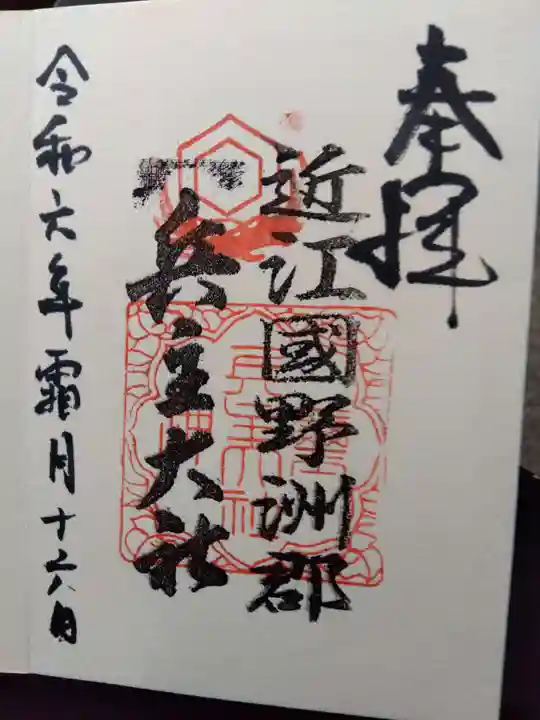 奉拝
近江國野洲郡
兵主大社
令和六年霜月十六日